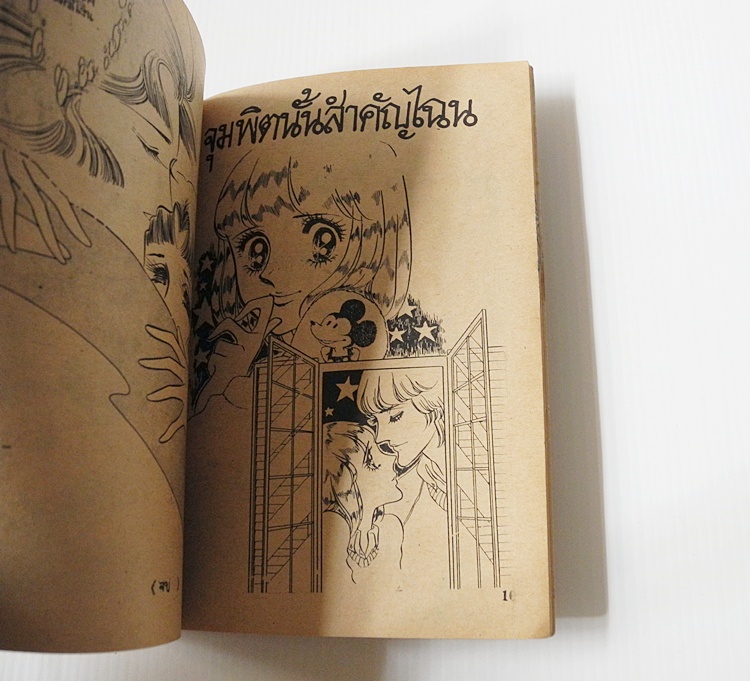 จุมพิตนั้นสำคัญไฉน
( จบ )